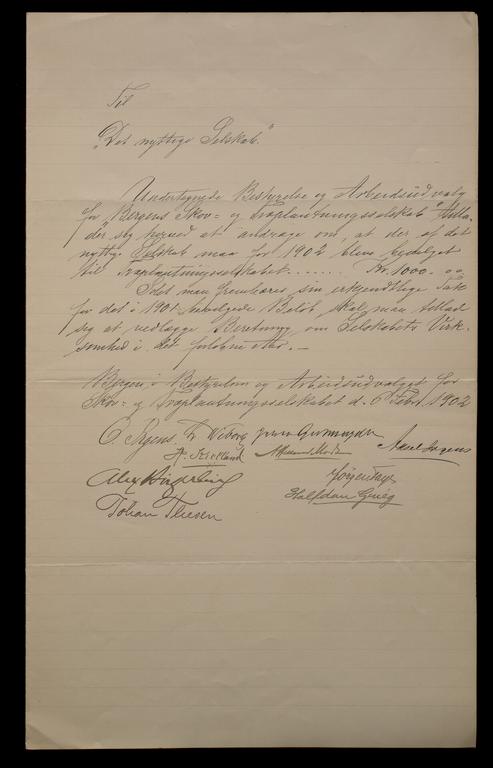 Til
"Det nyttige Selskab."
Undertegnede Bestyrelse og Arbeidsudvalg
for "Bergens Skov= og Træplantningsselskab" tilla=
der sig herved at andrage om, at der af det
nyttige Selskab maa for 1902 blive bevilget
til Træplantningsselskabet...... Kr. 1000.-
Idet man frembærer sin erkjendtlige Tak
for det i 1901 bevilgede Beløb skal man tillad
sig at vedlægge Beretning om Selskabets Virk=
somhed i det forløbne
Bergen, i Bestyrelsen og Arbeidsudvalget for
Skov= og Træplantningsselskabet d. 6 Febr. 1902
Fr. Wiborg
Kielland
Jørgen
Halfdan Grieg
Johan Thesen